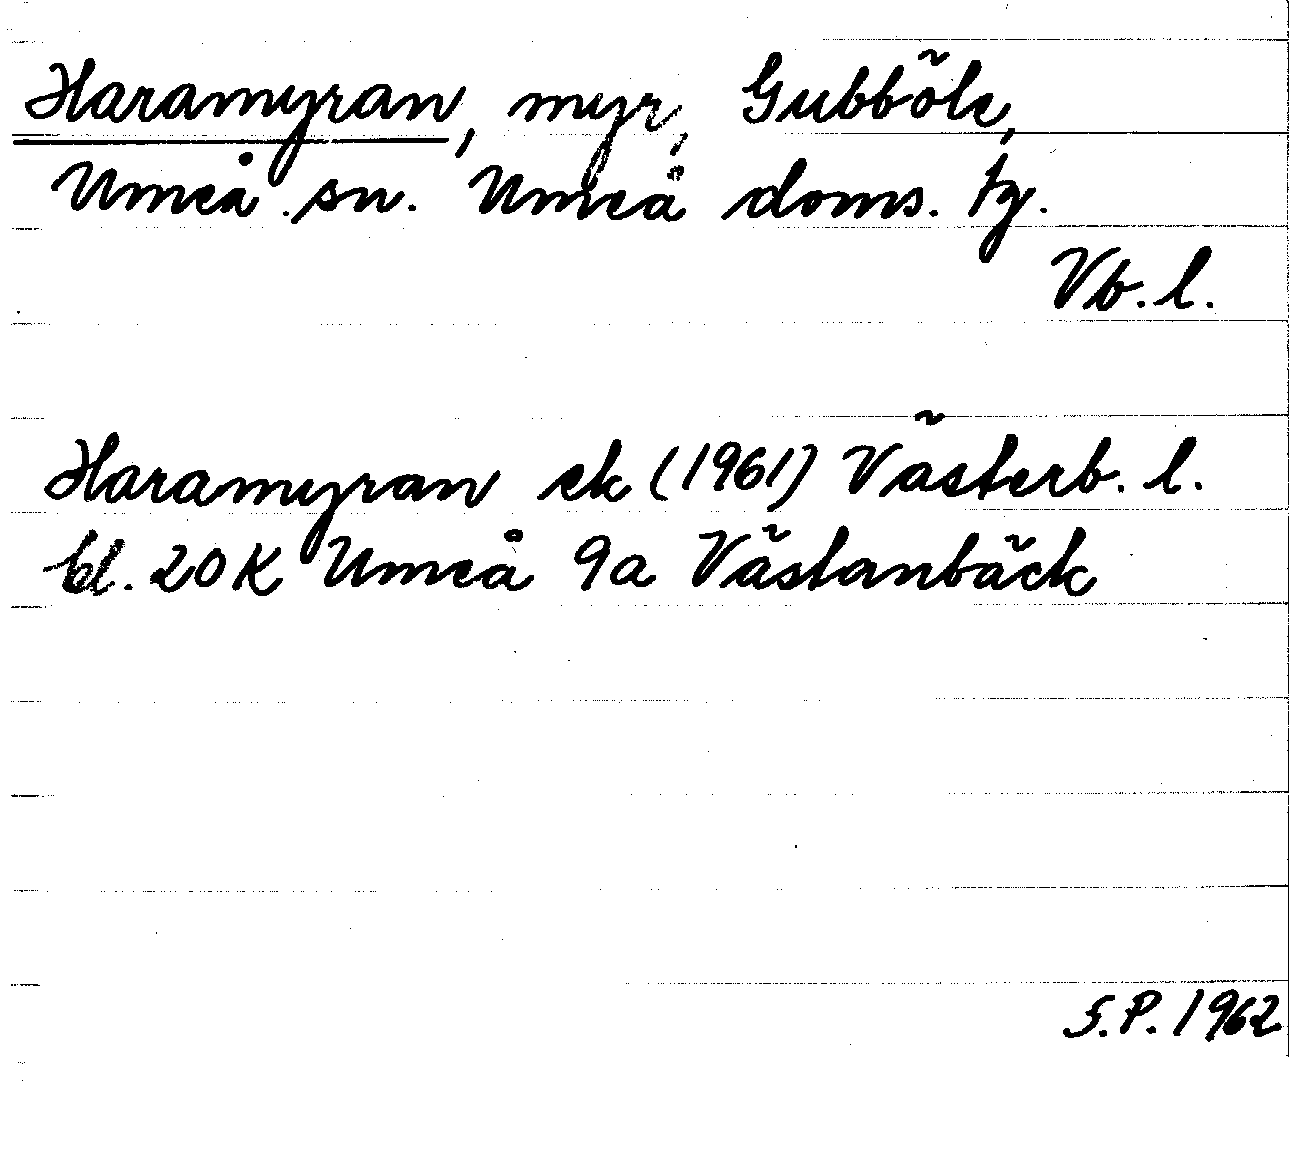 Haramyran, myr, Gubböle,
Umeå sn. Umeå doms. tg.
Vb. l.
Haramyran ek (1961) Västerb. l.
bl. 20 K Umeå 9a Västanbäck
S.P. 1962